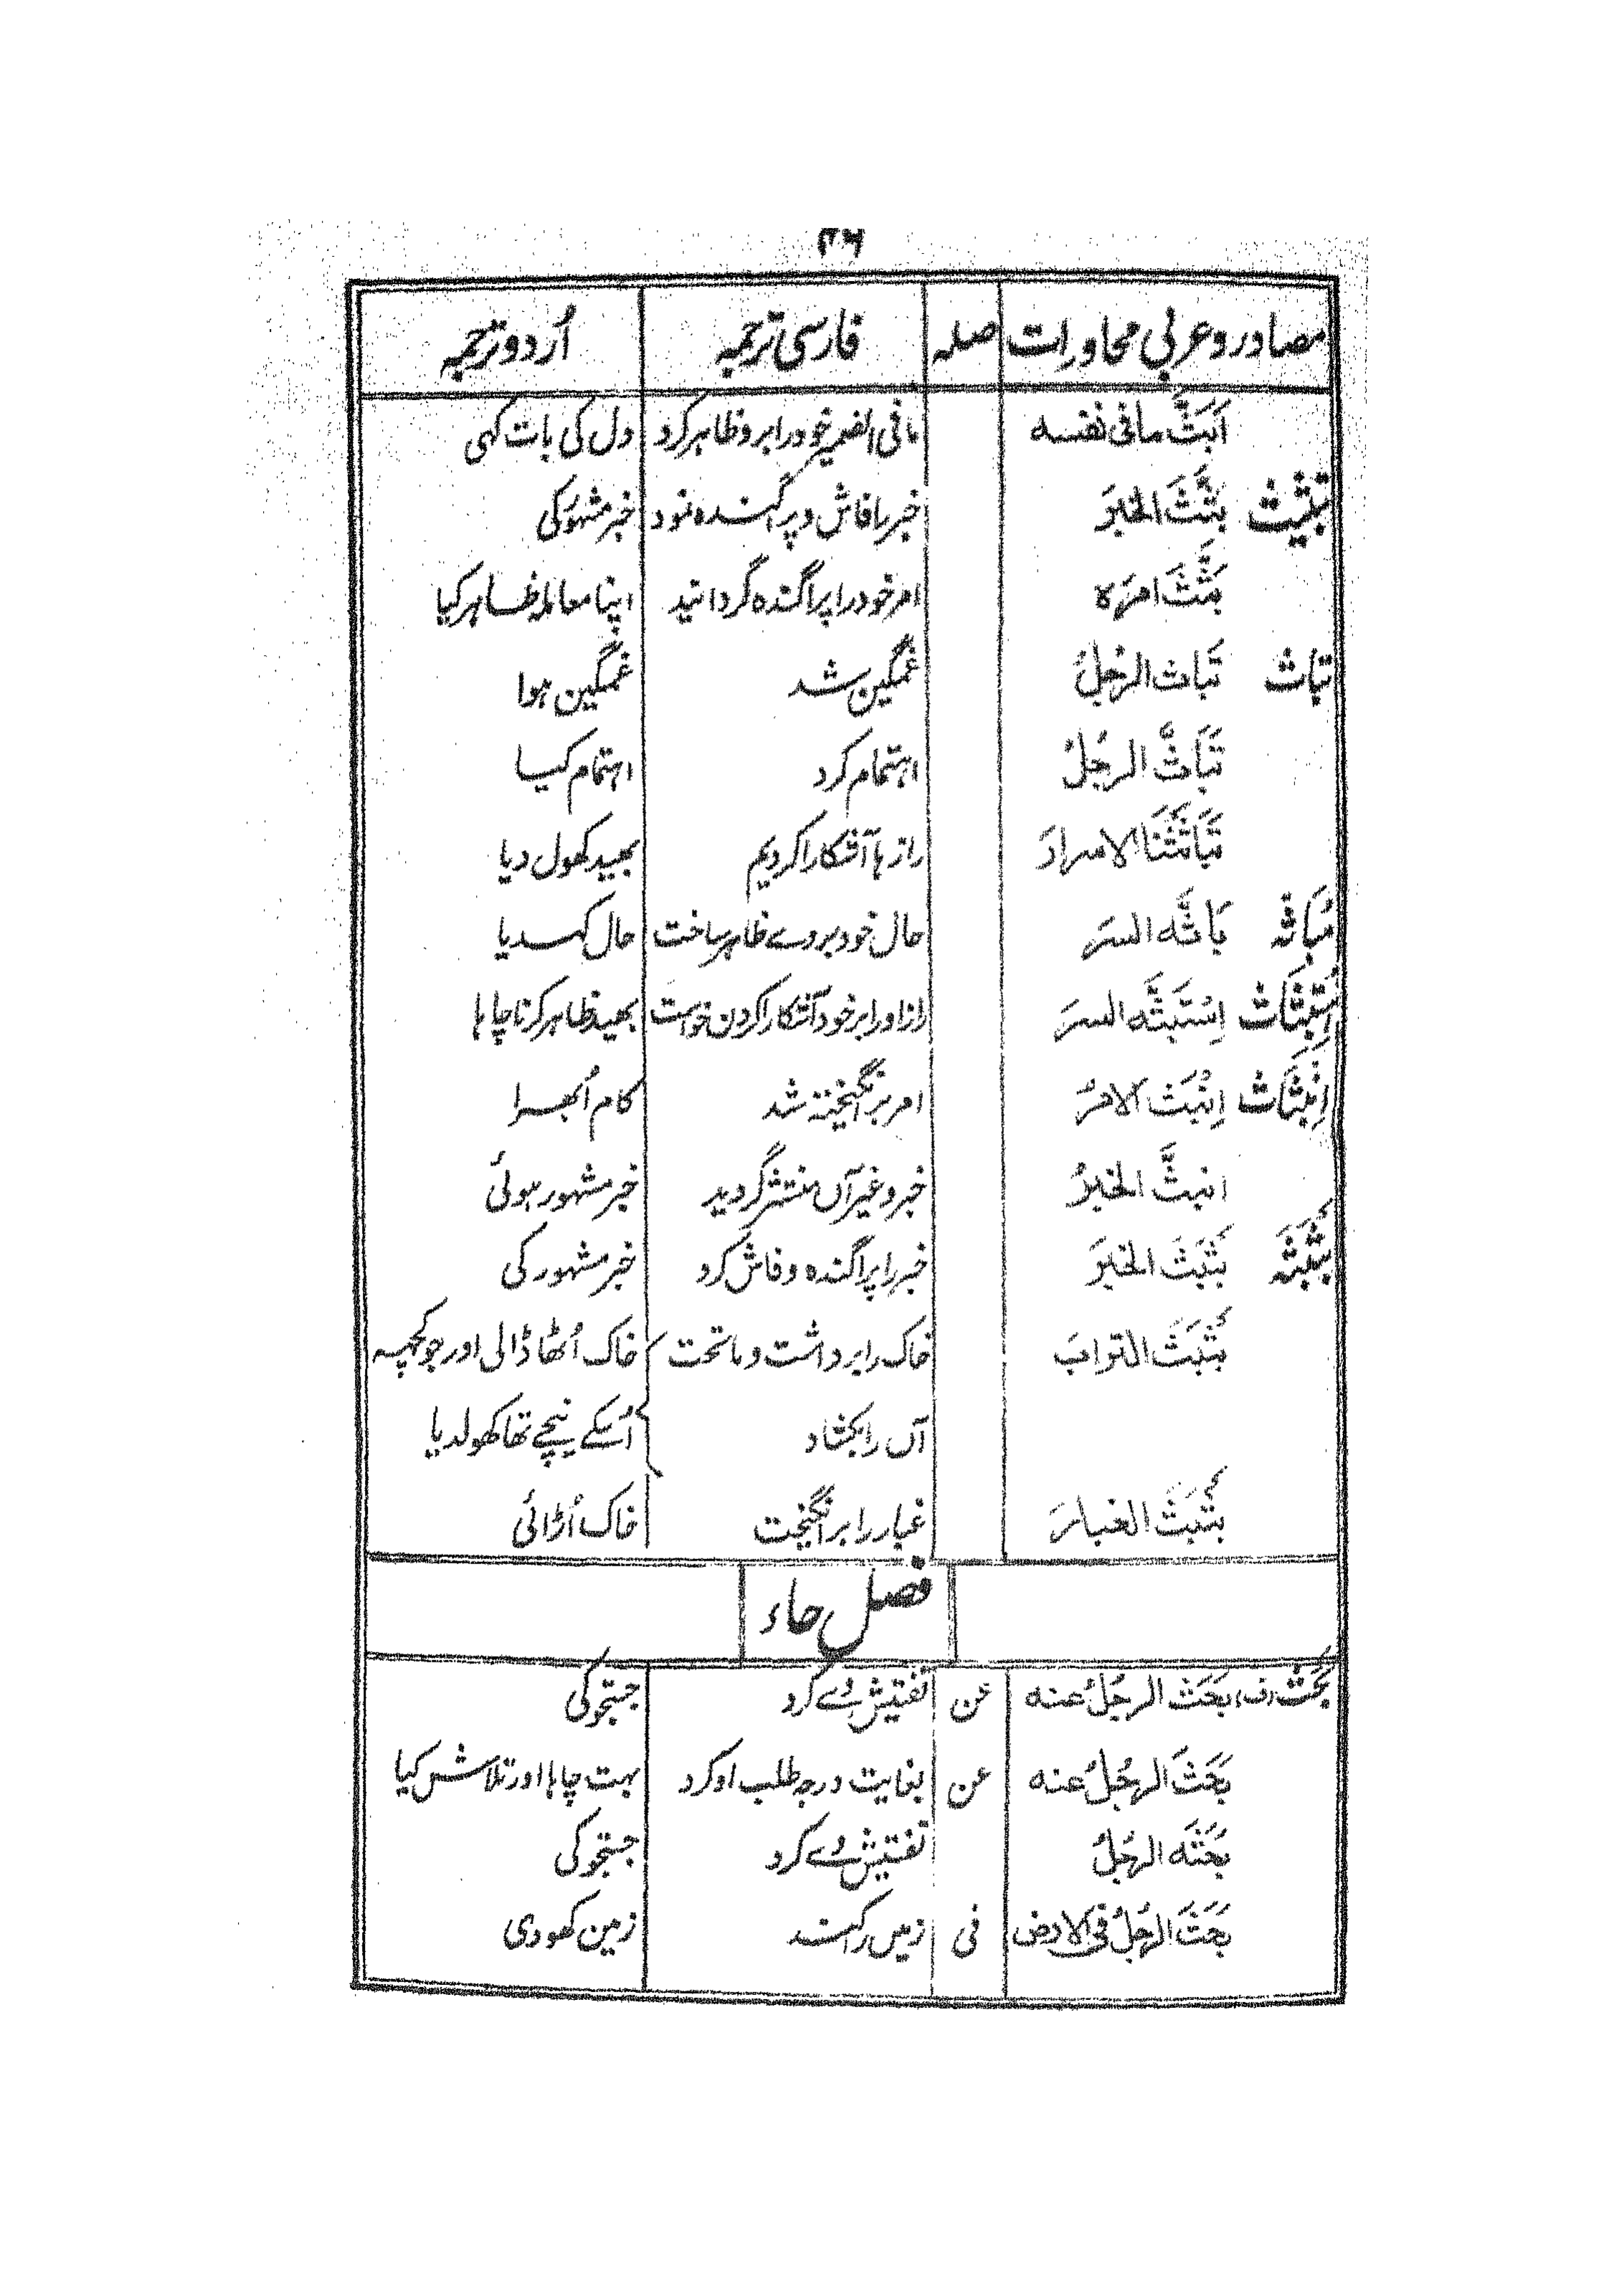 ۳۶
مصادر و عربی محاورات صلہ فارسی ترجمہ اُردو ترجمہ
اَبَثَّ مافی نفسہ مافی الضمیر خود را برو ظاہر کرد دل کی بات کہی
تبثیث بَثَّثَ الخبرَ خبر را فاش و پراگندہ نمود خبر مشہور کی
بَثَّثَ امرَہ امر خود را پراگندہ گردانید اپنا معاملہ ظاہر کیا
تباث تَباث الرجُلُ غمگین شد غمگین ہوا
تَبَاثَّ الرجُلُ اہتمام کرد اہتمام کیا
تَبَاثَثْنَا الاسرارَ راز ہا آشکارا کردیم بھید کھول دیا
مُباثہ بَاثَّہ السرَ حال خود بروے ظاہر ساخت حال کہدیا
اِستِبثَاث اِسْتَبَثَّہ السرَ راز او را بر خود آشکارا کردن خواست بھید ظاہر کرنا چاہا
اِنبِثَاث اِنْبَثَ الامرُ امر برانگیختہ شد کام اُبھرا
انبثَّ الخبرُ خبر و غیر آں منتشر گردید خبر مشہور ہوئی
بَثْبَثَہ بَثْبَثَ الخبرَ خبر را پراگندہ و فاش کرد خبر مشہور کی
بَثْبَثَ الترابَ خاک را برداشت و ماتحت خاک اُٹھا ڈالی اور جو کچھہ
آں را بکشاد اُسکے نیچے تھا کھولدیا
بَثْبَثَ الغبارَ غبار را برانگیخت خاک اُڑائی
فصل حاء
بَحْث (ف) بَحَثَ الرجُلُ عنہ عن تفتیش وے کرد جستجو کی
بَحَثَ الرجُلُ عنہ عن بغایت درجہ طلب او کرد بہت چاہا اور تلاش کیا
بَحَثَہ الرجُلُ تفتیش وے کرد جستجو کی
بَحَثَ الرجُلُ فی الارض فی زمیں را کند زمین کھودی